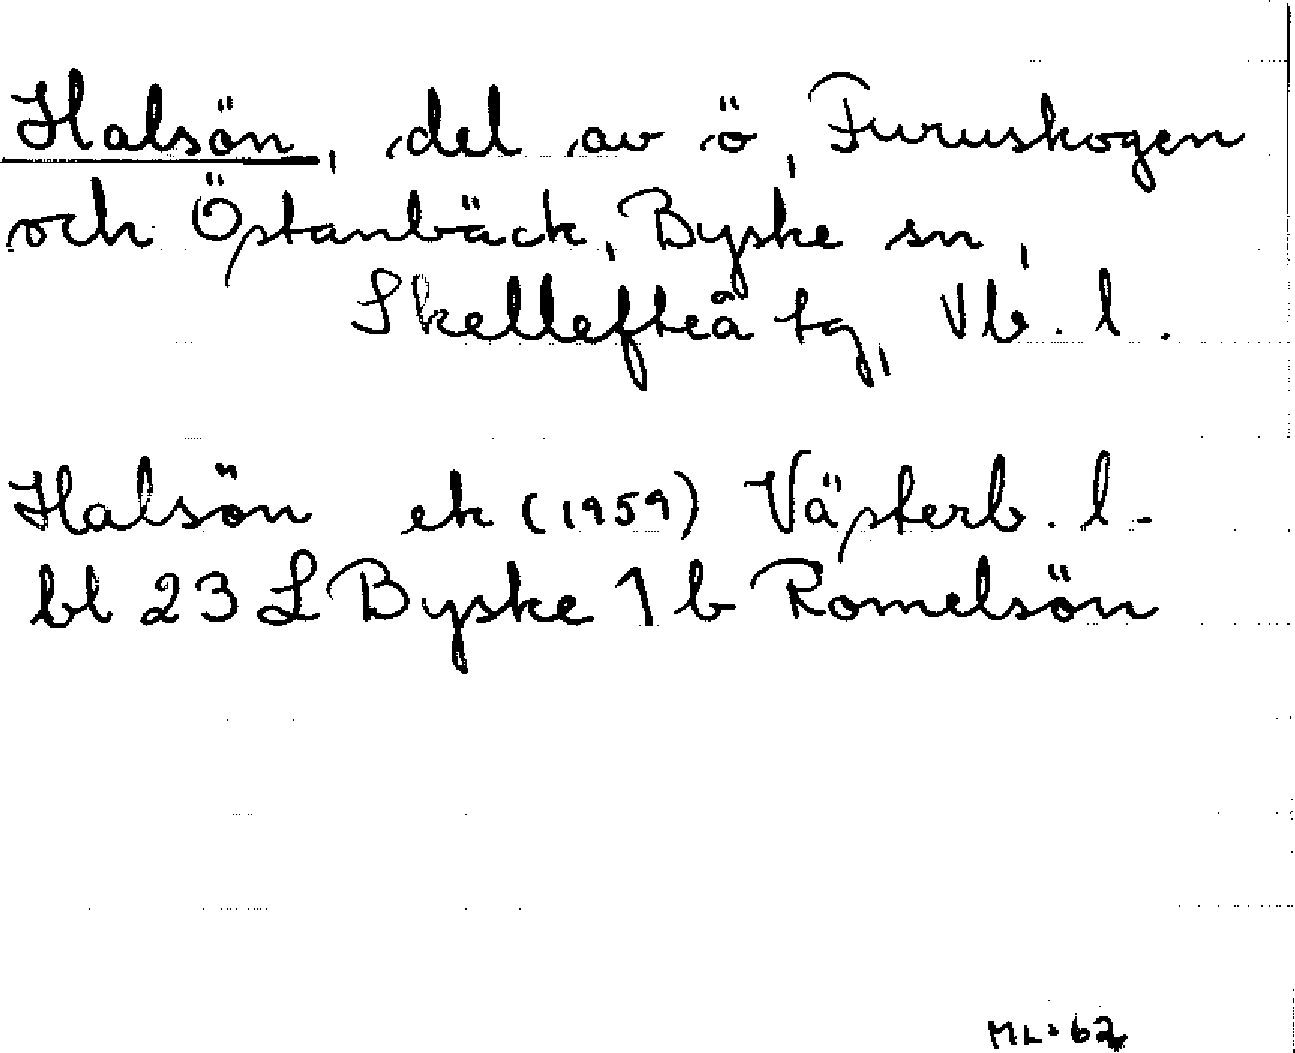 Halsön, del av ö, Furuskogen
och Östanbäck, Byske sn,
Skellefteå tg, Vb. l.
Halsön ek (1959) Västerb. l.
bl 23 L Byske 1 b Romelsön
ML-62